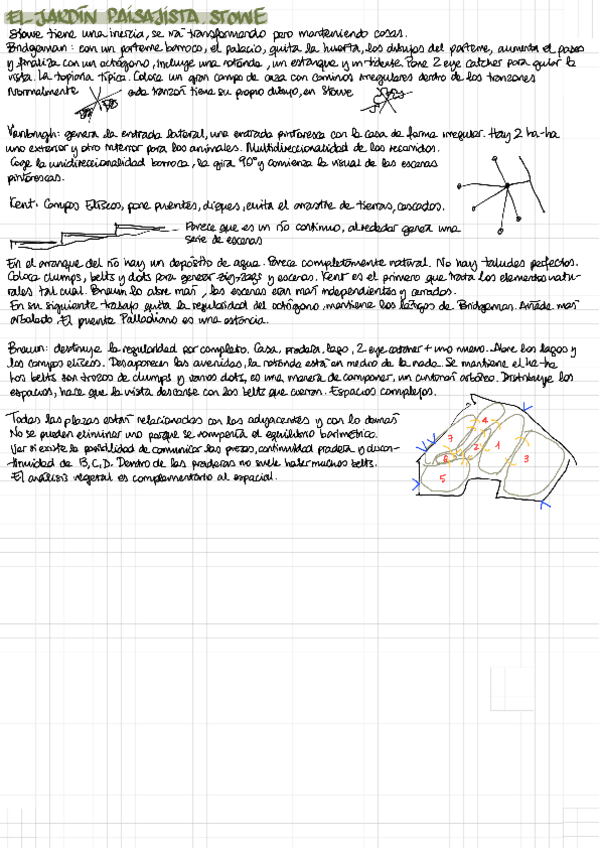 EL JARDÍN PAISAJISTA. STOWE
Stowe tiene una inercia, se va transformando pero manteniendo cosas.
Bridgeman: con un parterre barroco, el palacio, quita la huerta, los dibujos del parterre, aumenta el paseo
y finaliza con un octógono, incluye una rotonda, un estanque y un tridente. Pone 2 eye catcher para guiar la
vista. La topiaria típica. Coloca un gran campo de caza con caminos irregulares dentro de los tranzones
Normalmente cada tranzón tiene su propio dibujo, en Stowe
Vanbrugh: genera la entrada lateral, una entrada pintoresca con la casa de forma irregular. Hay 2 ha-ha
uno exterior y otro interior para los animales. Multidireccionalidad de los recorridos.
Coge la unidireccionalidad barroca, la gira 90º y comienza la visual de las escenas
pintorescas.
Kent: Campos Elíseos, pone puentes, diques, evita el arrastre de tierras, cascadas.
Parece que es un río continuo, alrededor genera una
serie de escenas
En el arranque del río hay un depósito de agua. Parece completamente natural. No hay taludes perfectos.
Coloca clumps, belts y dots para generar zig-zags y escenas. Kent es el primero que trata los elementos natu-
rales tal cual. Braun lo abre más, las escenas eran más independientes y cerradas.
En su siguiente trabajo quita la regularidad del octógono, mantiene los lagos de Bridgeman. Añade más
arbolado. El puente Palladiano es una estancia.
Braun: destruye la regularidad por completo. Casa, pradera, lago, 2 eye catcher + uno nuevo. Abre los lagos y
los campos elíseos. Desaparecen las avenidas, la rotonda está en medio de la nada. Se mantiene el ha-ha
Los belts son trozos de clumps y varios dots, es una manera de componer, un cinturón arbóreo. Distribuye los
espacios, hace que la vista descanse con los belts que cierran. Espacios complejos.
Todas las plazas están relacionadas con las adyacentes y con lo demás
No se pueden eliminar uno porque se rompería el equilibrio barimétrico.
Ver si existe la posibilidad de comunicar las piezas, continuidad pradera y discon-
tinuidad de B, C, D. Dentro de las praderas no suele haber muchos belts.
El análisis vegetal es complementario al espacial.
4
7
2
1
6
3
5